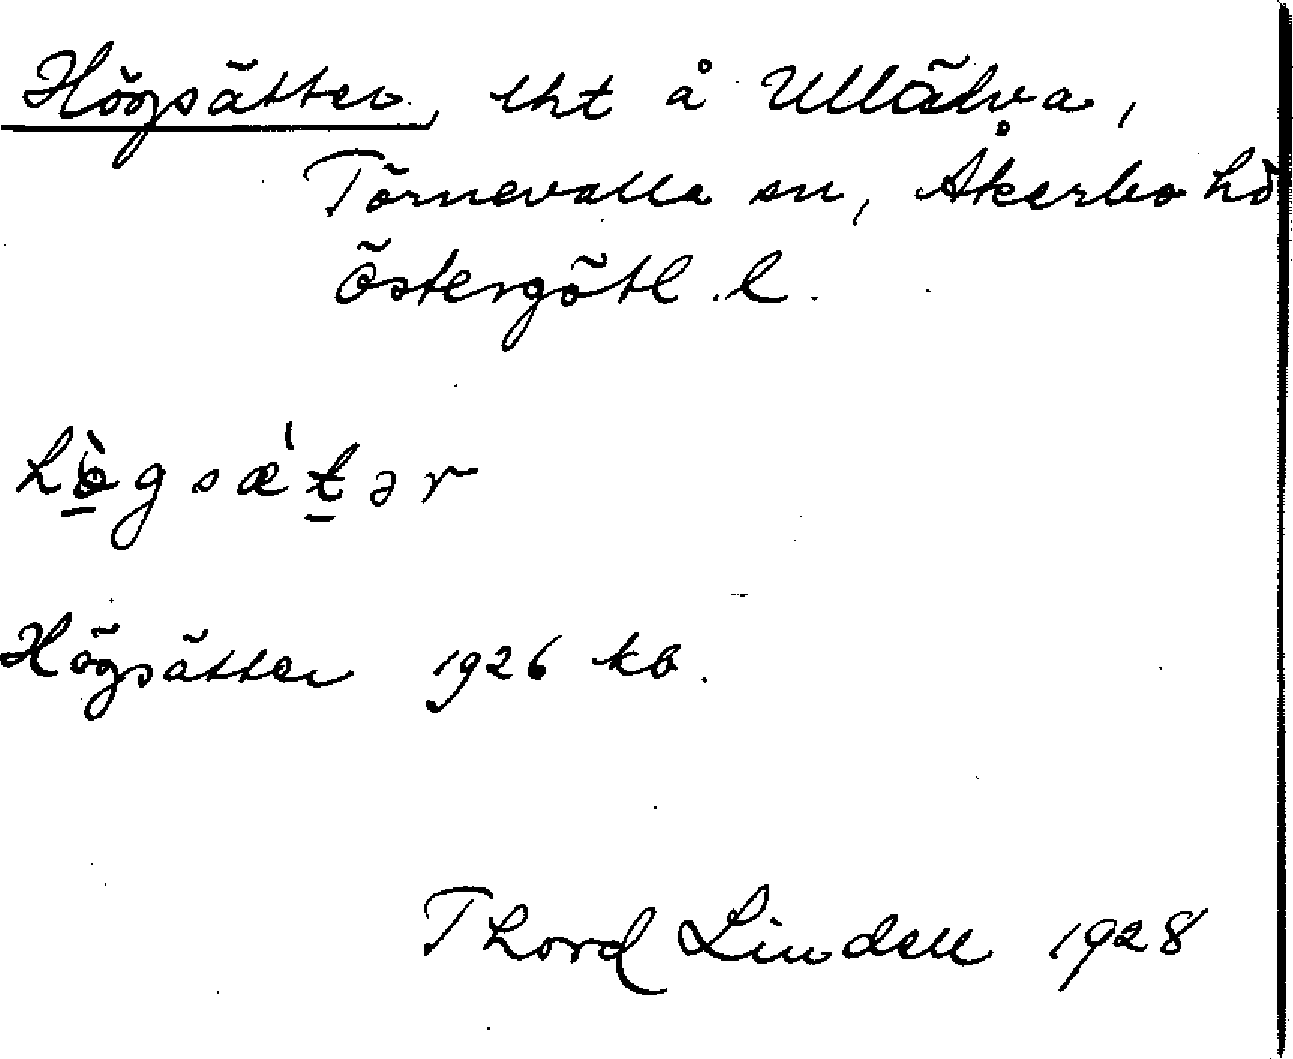 Högsätter, lht å Ullälva,
Törnevalla sn, Åkerbo hd
Östergötl. l.
hö̀gsæ'tər
Högsätter 1926 kb.
Thord Lindell 1928